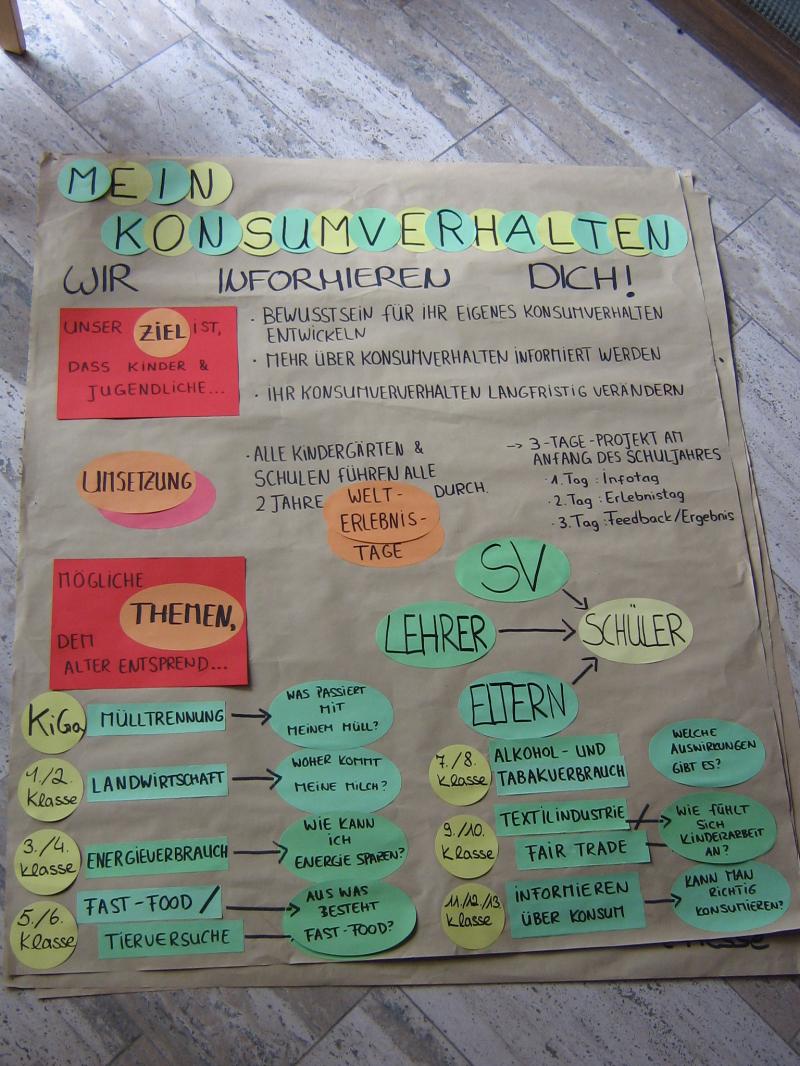 MEIN
KONSUMVERHALTEN
WIR INFORMIEREN DICH!
UNSER ZIEL IST,
DASS KINDER &
JUGENDLICHE...
· BEWUSSTSEIN FÜR IHR EIGENES KONSUMVERHALTEN
ENTWICKELN
· MEHR ÜBER KONSUMVERHALTEN INFORMIERT WERDEN
· IHR KONSUMVERVERHALTEN LANGFRISTIG VERÄNDERN
UMSETZUNG
· ALLE KINDERGÄRTEN &
SCHULEN FÜHREN ALLE
2 JAHRE WELT- DURCH.
ERLEBNIS-
TAGE
→ 3-TAGE-PROJEKT AM
ANFANG DES SCHULJAHRES
· 1. Tag : Infotag
· 2. Tag : Erlebnistag
· 3. Tag : Feedback/Ergebnis
MÖGLICHE
THEMEN,
DEM
ALTER ENTSPREND...
SV
LEHRER → SCHÜLER
ELTERN
KiGa MÜLLTRENNUNG →
WAS PASSIERT
MIT
MEINEM MÜLL?
1./2.
Klasse
LANDWIRTSCHAFT →
WOHER KOMMT
MEINE MILCH?
3./4.
Klasse
ENERGIEVERBRAUCH →
WIE KANN
ICH
ENERGIE SPAREN?
5./6.
Klasse
FAST-FOOD /
TIERVERSUCHE
AUS WAS
BESTEHT
FAST-FOOD?
7./8.
Klasse
ALKOHOL- UND
TABAKVERBRAUCH
WELCHE
AUSWIRKUNGEN
GIBT ES?
9./10.
Klasse
TEXTILINDUSTRIE /
FAIR TRADE
WIE FÜHLT
SICH
KINDERARBEIT
AN?
11./12./13
Klasse
INFORMIEREN
ÜBER KONSUM
KANN MAN
RICHTIG
KONSUMIEREN?